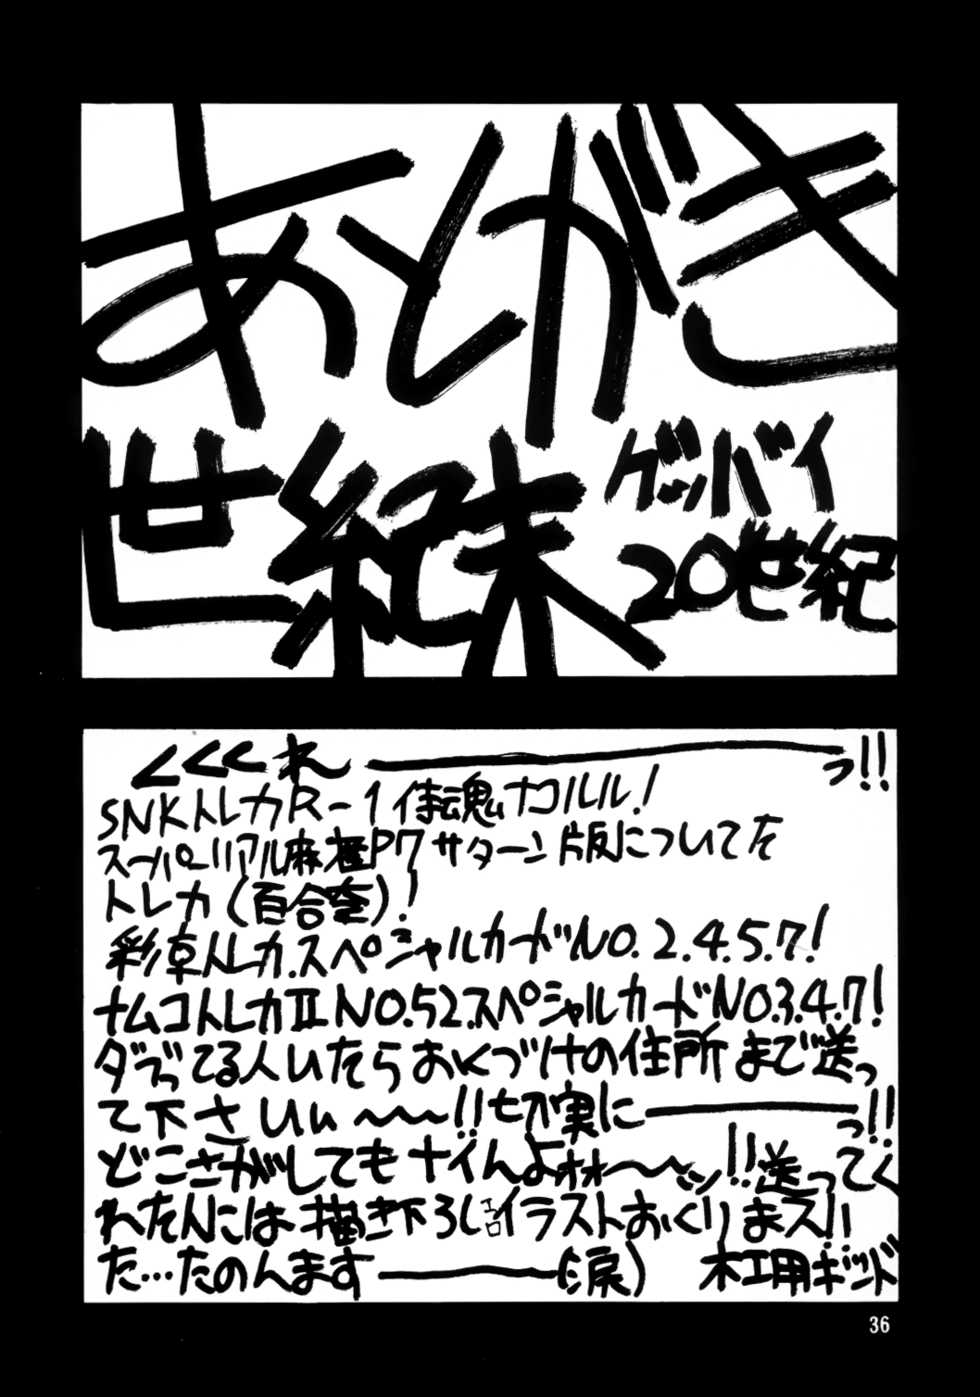 あとがき
世紀末
グッバイ
20世紀
くくくれ――――――っ!!
SNKトレカR-1侍魂ナコルル!
スーパーリアル麻雀P7サターン片版についてた
トレカ(百合奈)!
彩京トレカ.スペシャルカードNO.2.4.5.7!
ナムコトレカⅡNO.52.スペシャルカードNO3.4.7!
ダブってる人いたらおくづけの住所まで送っ
て下さいぃ〜〜〜!!切実に――――っ!!
どこさがしてもナイんよォォ〜〜ッ!!送ってく
れた人には描き下ろしエロイラストおくりまス!!
た…たのんます――――(涙) 木工用ボンド
36